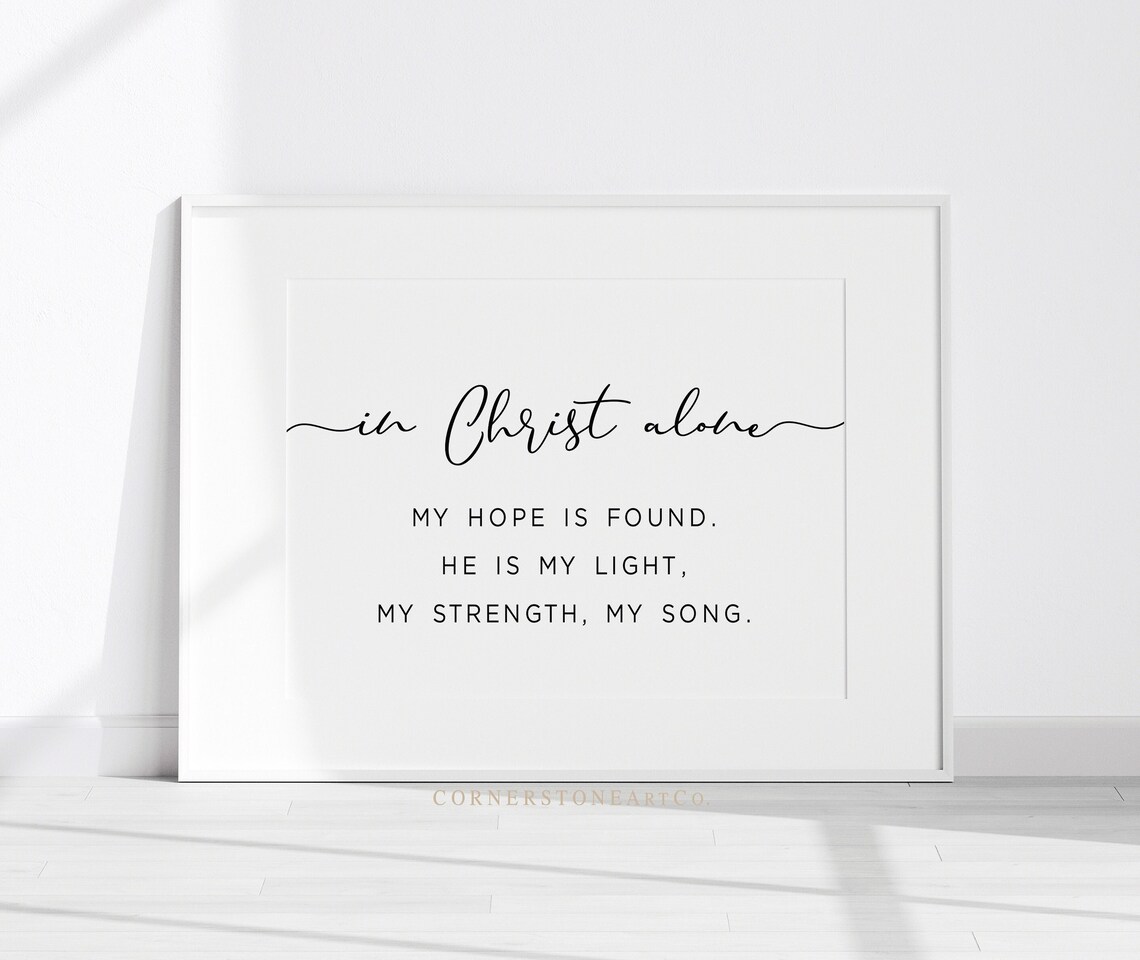 in Christ alone
MY HOPE IS FOUND.
HE IS MY LIGHT,
MY STRENGTH, MY SONG.
CORNERSTONEARTCO.